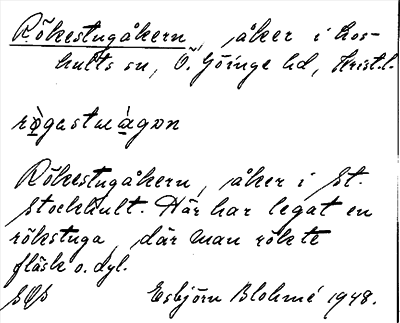 Rökestugåkern, åker i Los-
hults sn, Ö. Göinge hd, Krist.l.
rø̀gastuàgɒn
Rökestugåkern, åker i St.
Stockhult. Här har legat en
rökstuga, där man rökte
fläsk o. dyl.
Esbjörn Blohmé 1948.